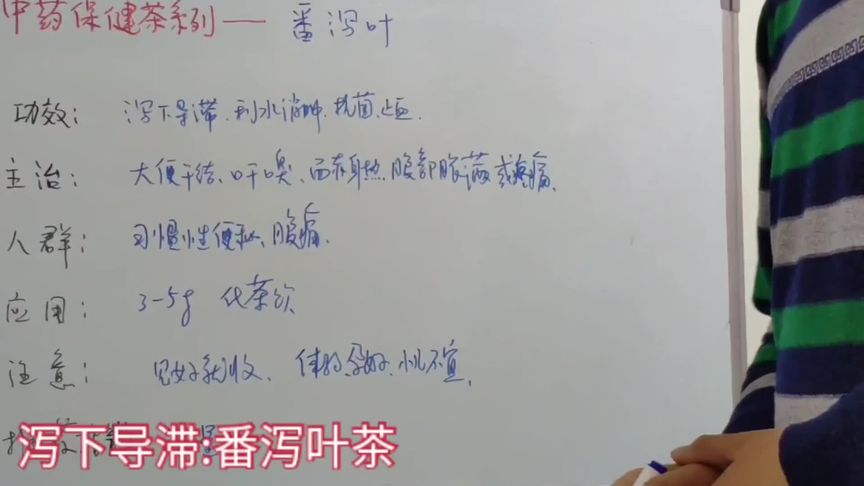 中药保健茶系列—番泻叶
功效: 泻下导滞、利水消肿、抗菌、止血.
主治: 大便干结、口干口臭、面赤身热、腹部胀满或疼痛.
人群: 习惯性便秘、腹痛.
应用: 3-5g 代茶饮
注意: 见好就收、体弱、孕妇、小儿不宜.
泻下导滞:番泻叶茶